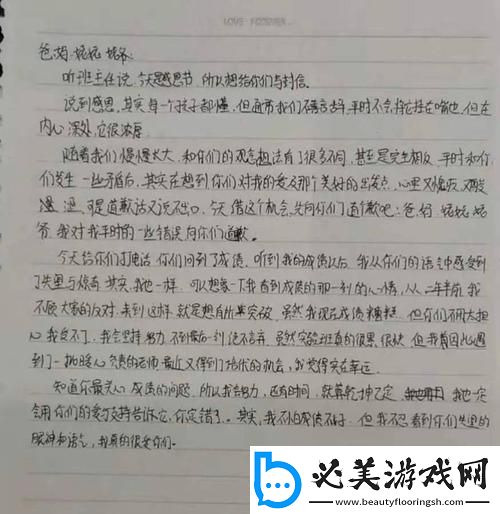 LOVE FOREVER
爸.妈.妮妮.爷爷:
听班主任说,今天是感恩节,所以想给你们写封信。
说到感恩,其实每一个孩子都懂,但通常我们不善言辞,平时不会将它挂在嘴边,但在
内心深处,它很浓厚
随着我们慢慢长大,和你们的观念想法有了很多不同,甚至是完全相反,平时和你
们发生一些矛盾后,其实在想到你们对我的爱及那个美好的出发点,心里又愧疚,又
可是道歉话又说不出口,今天借这个机会,先向你们道个歉吧:爸.妈.
爷,我对我平时的一些错误向你们道歉。
今天给你们打电话,你们问到了成绩,听到我的成绩以后,我从你们的语气中感受到
了失望与惊奇,其实,我也一样,可以想象一下我看到成绩的那一刻的心情,从二年前,我
不顾大家的反对,来到这样,就是想有所突破,虽然我现在成绩糟糕,但你们不用太担
心,我受不了,我会坚持努力,不到最后一刻绝不言弃,虽然实验班真的很累,很快,但我有因此遇
到了一批暖心负责的老师,最近又得到了培优的机会,我觉得实在幸运.
知道你最关心成绩的问题,所以我会努力,还有时间,就算乾坤已定,我也一定
会用你们的爱与支持告诉它,你定错了。其实,我不怕成绩不好,但我不忍看到你们失望的
眼神和语气,我真的很爱你们.
必美游戏网
www.beautyflooringsh.com